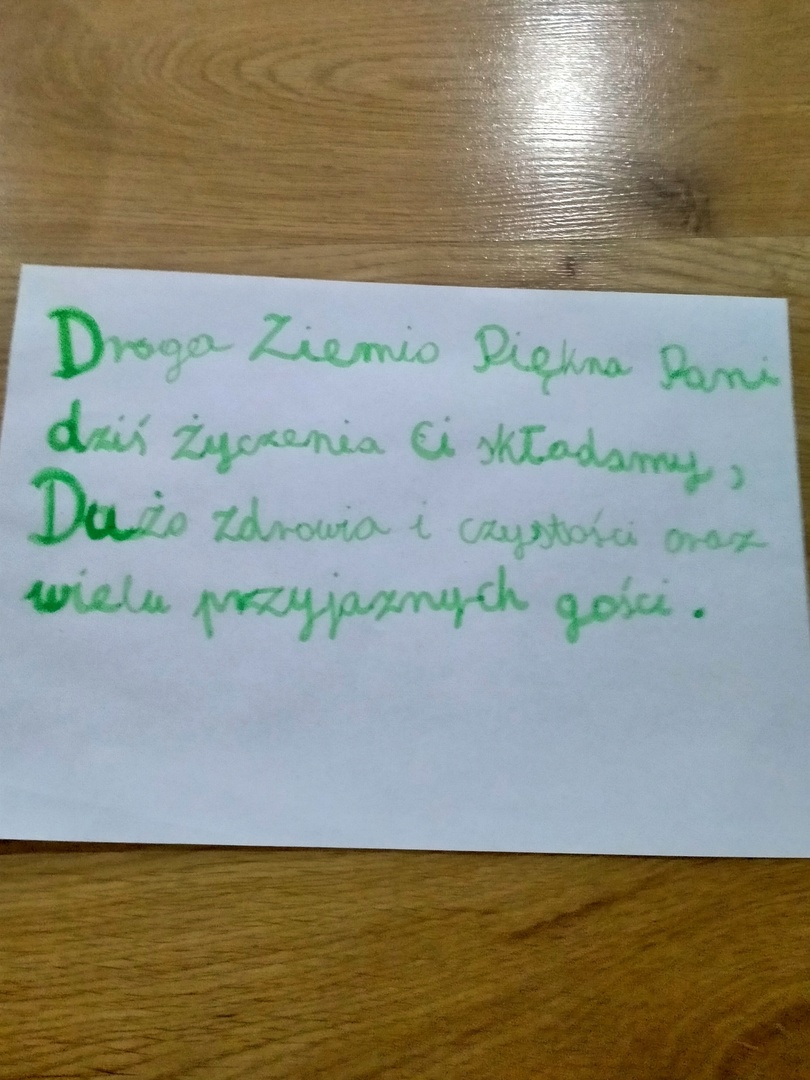 Droga Ziemio Piękna Pani
dziś życzenia Ci składamy,
Dużo zdrowia i czystości oraz
wielu przyjaznych gości.